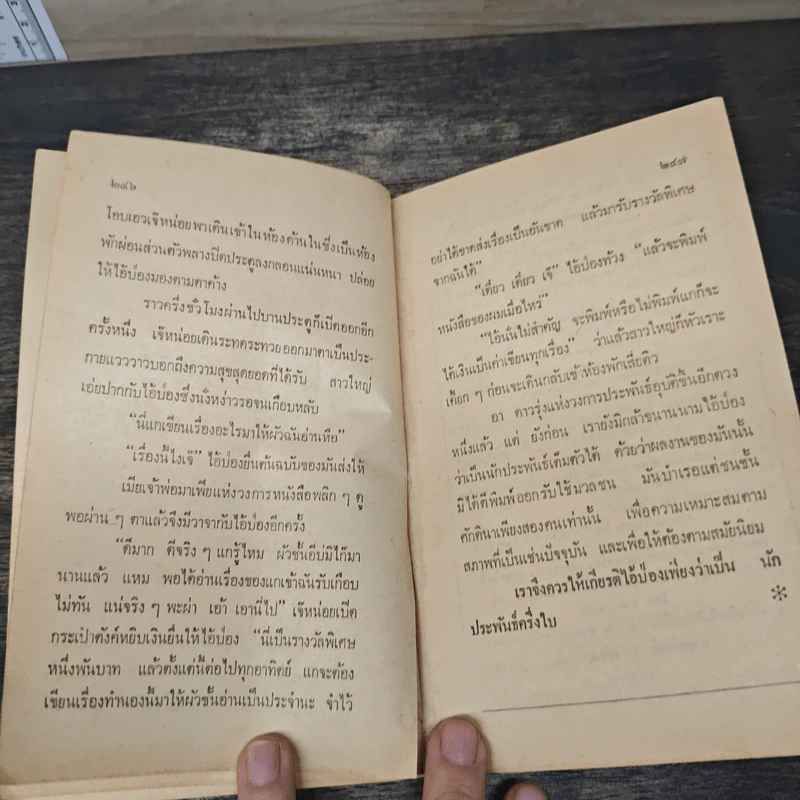 ๒๔๖
โอบเอวเจ๊หน่อยพาเดินเข้าในห้องด้านในซึ่งเป็นห้อง
พักผ่อนส่วนตัวพลางปิดประตูลงกลอนแน่นหนา ปล่อย
ให้ไอ้ป๋องมองตามตาค้าง
ราวครึ่งชั่วโมงผ่านไปบานประตูก็เปิดออกอีก
ครั้งหนึ่ง เจ๊หน่อยเดินระทดระทวยออกมาตาเป็นประ-
กายแวววาวบอกถึงความสุขสุดยอดที่ได้รับ สาวใหญ่
เอ่ยปากกับไอ้ป๋องซึ่งนั่งหง่าวรอจนเกือบหลับ
“นี่แกเขียนเรื่องอะไรมาให้ผัวฉันอ่านหือ”
“เรื่องนี้ไงเจ๊” ไอ้ป๋องยื่นต้นฉบับของมันส่งให้
เมียเจ้าพ่อมาเฟียแห่งวงการหนังสือพลิก ๆ ดู
พอผ่าน ๆ ตาแล้วจึงมีวาจากับไอ้ป๋องอีกครั้ง
“ดีมาก ดีจริง ๆ แกรู้ไหม ผัวชั้นอีปมิไก๊มา
นานแล้ว แหม พอได้อ่านเรื่องของแกเข้าฉันรับเกือบ
ไม่ทัน แน่จริง ๆ พะผ่า เอ้า เอานี่ไป” เจ๊หน่อยเปิด
กระเป๋าตังค์หยิบเงินยื่นให้ไอ้ป๋อง “นี่เป็นรางวัลพิเศษ
หนึ่งพันบาท แล้วตั้งแต่นี้ต่อไปทุกอาทิตย์ แกจะต้อง
เขียนเรื่องทำนองนี้มาให้ผัวชั้นอ่านเป็นประจำนะ จำไว้
๒๔๗
อย่าได้ขาดส่งเรื่องเป็นอันขาด แล้วมารับรางวัลพิเศษ
จากฉันได้”
“เดี๋ยว เดี๋ยว เจ๊” ไอ้ป๋องท้วง “แล้วจะพิมพ์
หนังสือของผมเมื่อไหร่”
“ไอ้นั่นไม่สำคัญ จะพิมพ์หรือไม่พิมพ์แกก็จะ
ได้เงินเป็นค่าเขียนทุกเรื่อง” ว่าแล้วสาวใหญ่ก็หัวเราะ
เคี๊ยก ๆ ก่อนจะเดินกลับเข้าห้องพักเสี่ยติว
อา ดาวรุ่งแห่งวงการประพันธ์อุบัติขึ้นอีกดวง
หนึ่งแล้ว แต่ ยังก่อน เรายังมิกล้าขนานนามไอ้ป๋อง
ว่าเป็นนักประพันธ์เต็มตัวได้ ด้วยว่าผลงานของมันนั้น
มิได้ตีพิมพ์ออกรับใช้มวลชน มันบำเรอแต่ชนชั้น
ศักดินาเพียงสองคนเท่านั้น เพื่อความเหมาะสมตาม
สภาพที่เป็นเช่นปัจจุบัน และเพื่อให้ต้องตามสมัยนิยม
เราจึงควรให้เกียรติไอ้ป๋องเพียงว่าเป็น นัก
ประพันธ์ครึ่งใบ